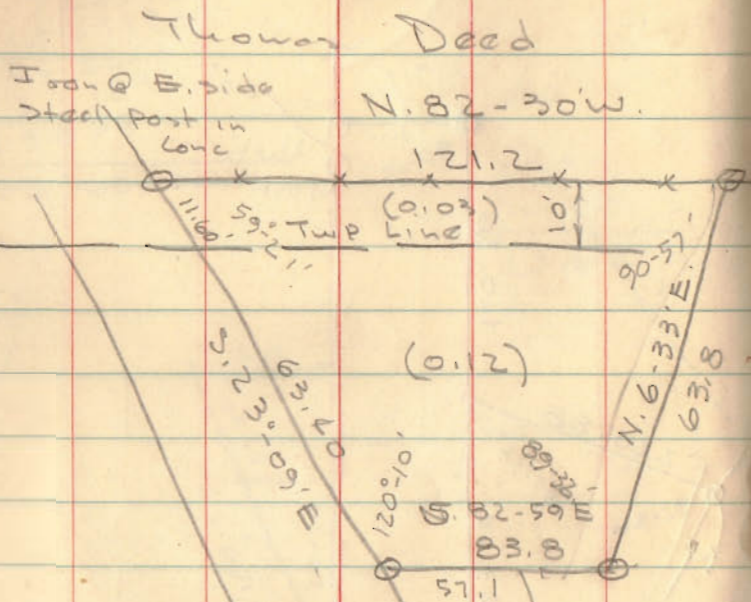 Thomas Deed
Iron @ E. side
Steel Post in
Conc
N. 82-30'W.
121.2
(0.03)
10'
11.60
59°-21'
Twp Line
90-57'
N. 6-33'E.
63.8
(0.12)
S. 23°-09'E
63.40
120°-10'
89-32'
S. 82-59E
83.8
57.1